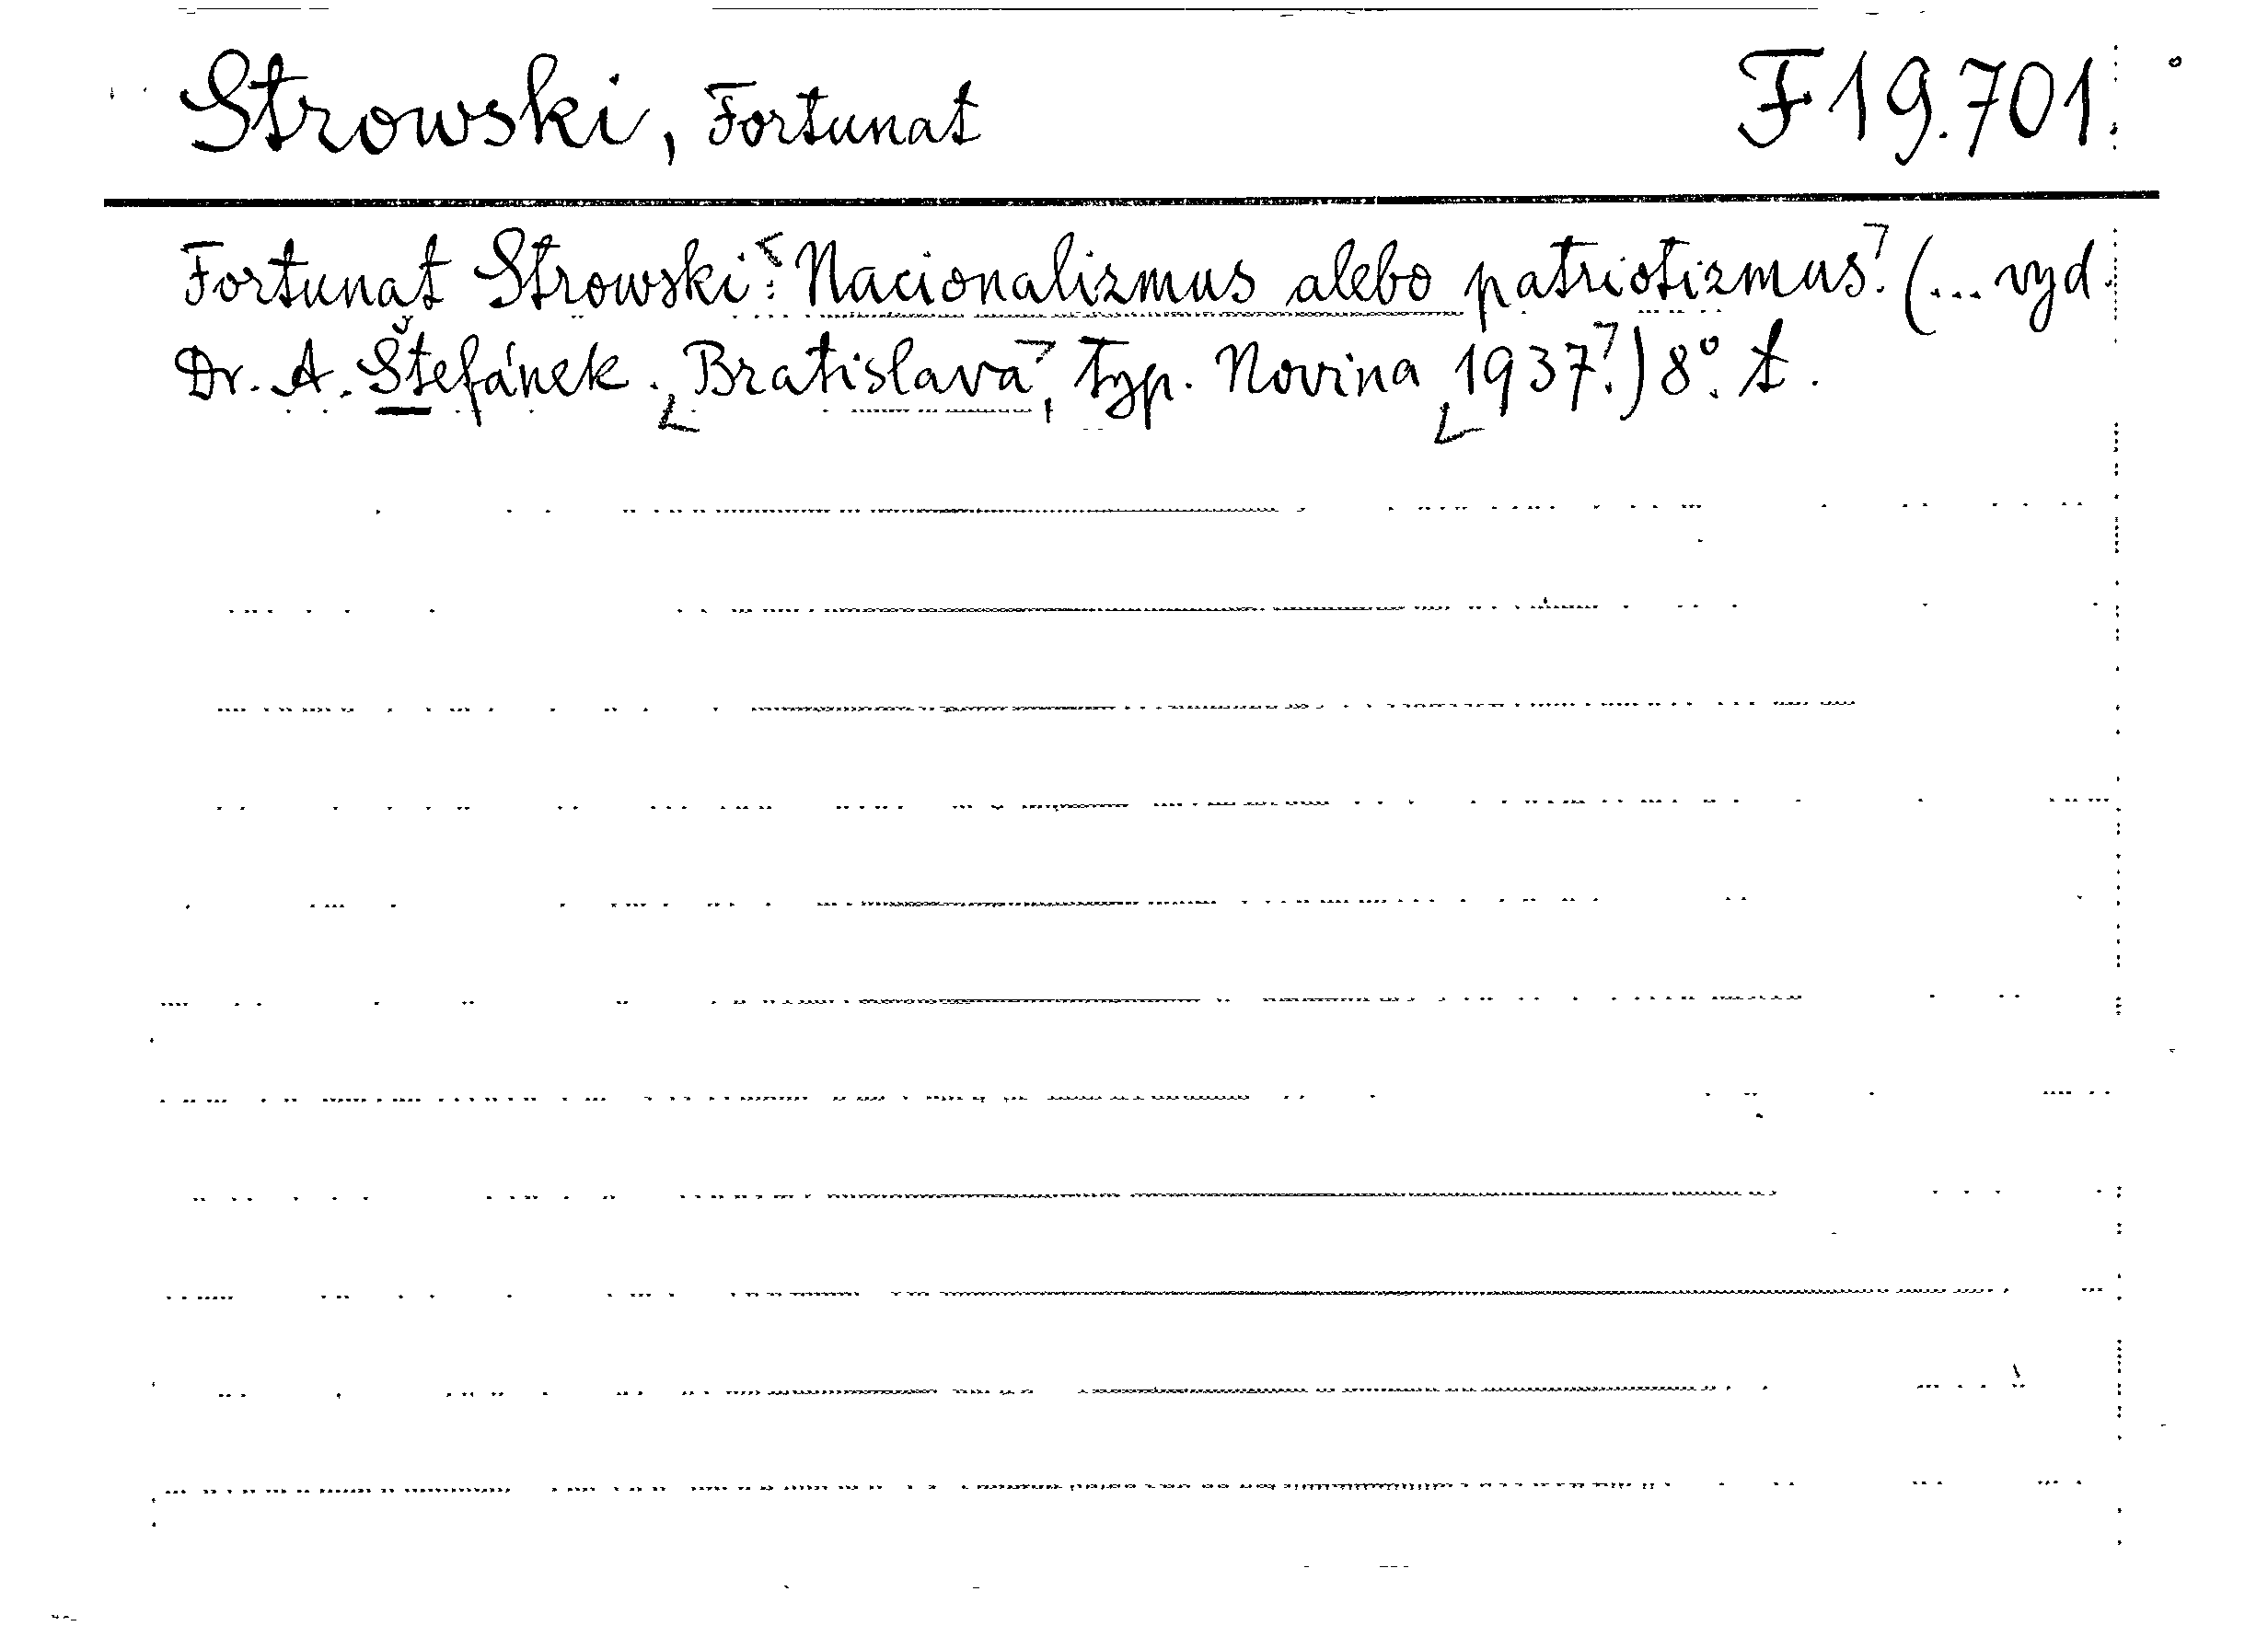 Strowski, Fortunat F 19.701.
Fortunat Strowski: Nacionalizmus alebo patriotizmus. (... vyd.
Dr. A. Štefánek. Bratislava, typ. Novina 1937.) 8°. t.